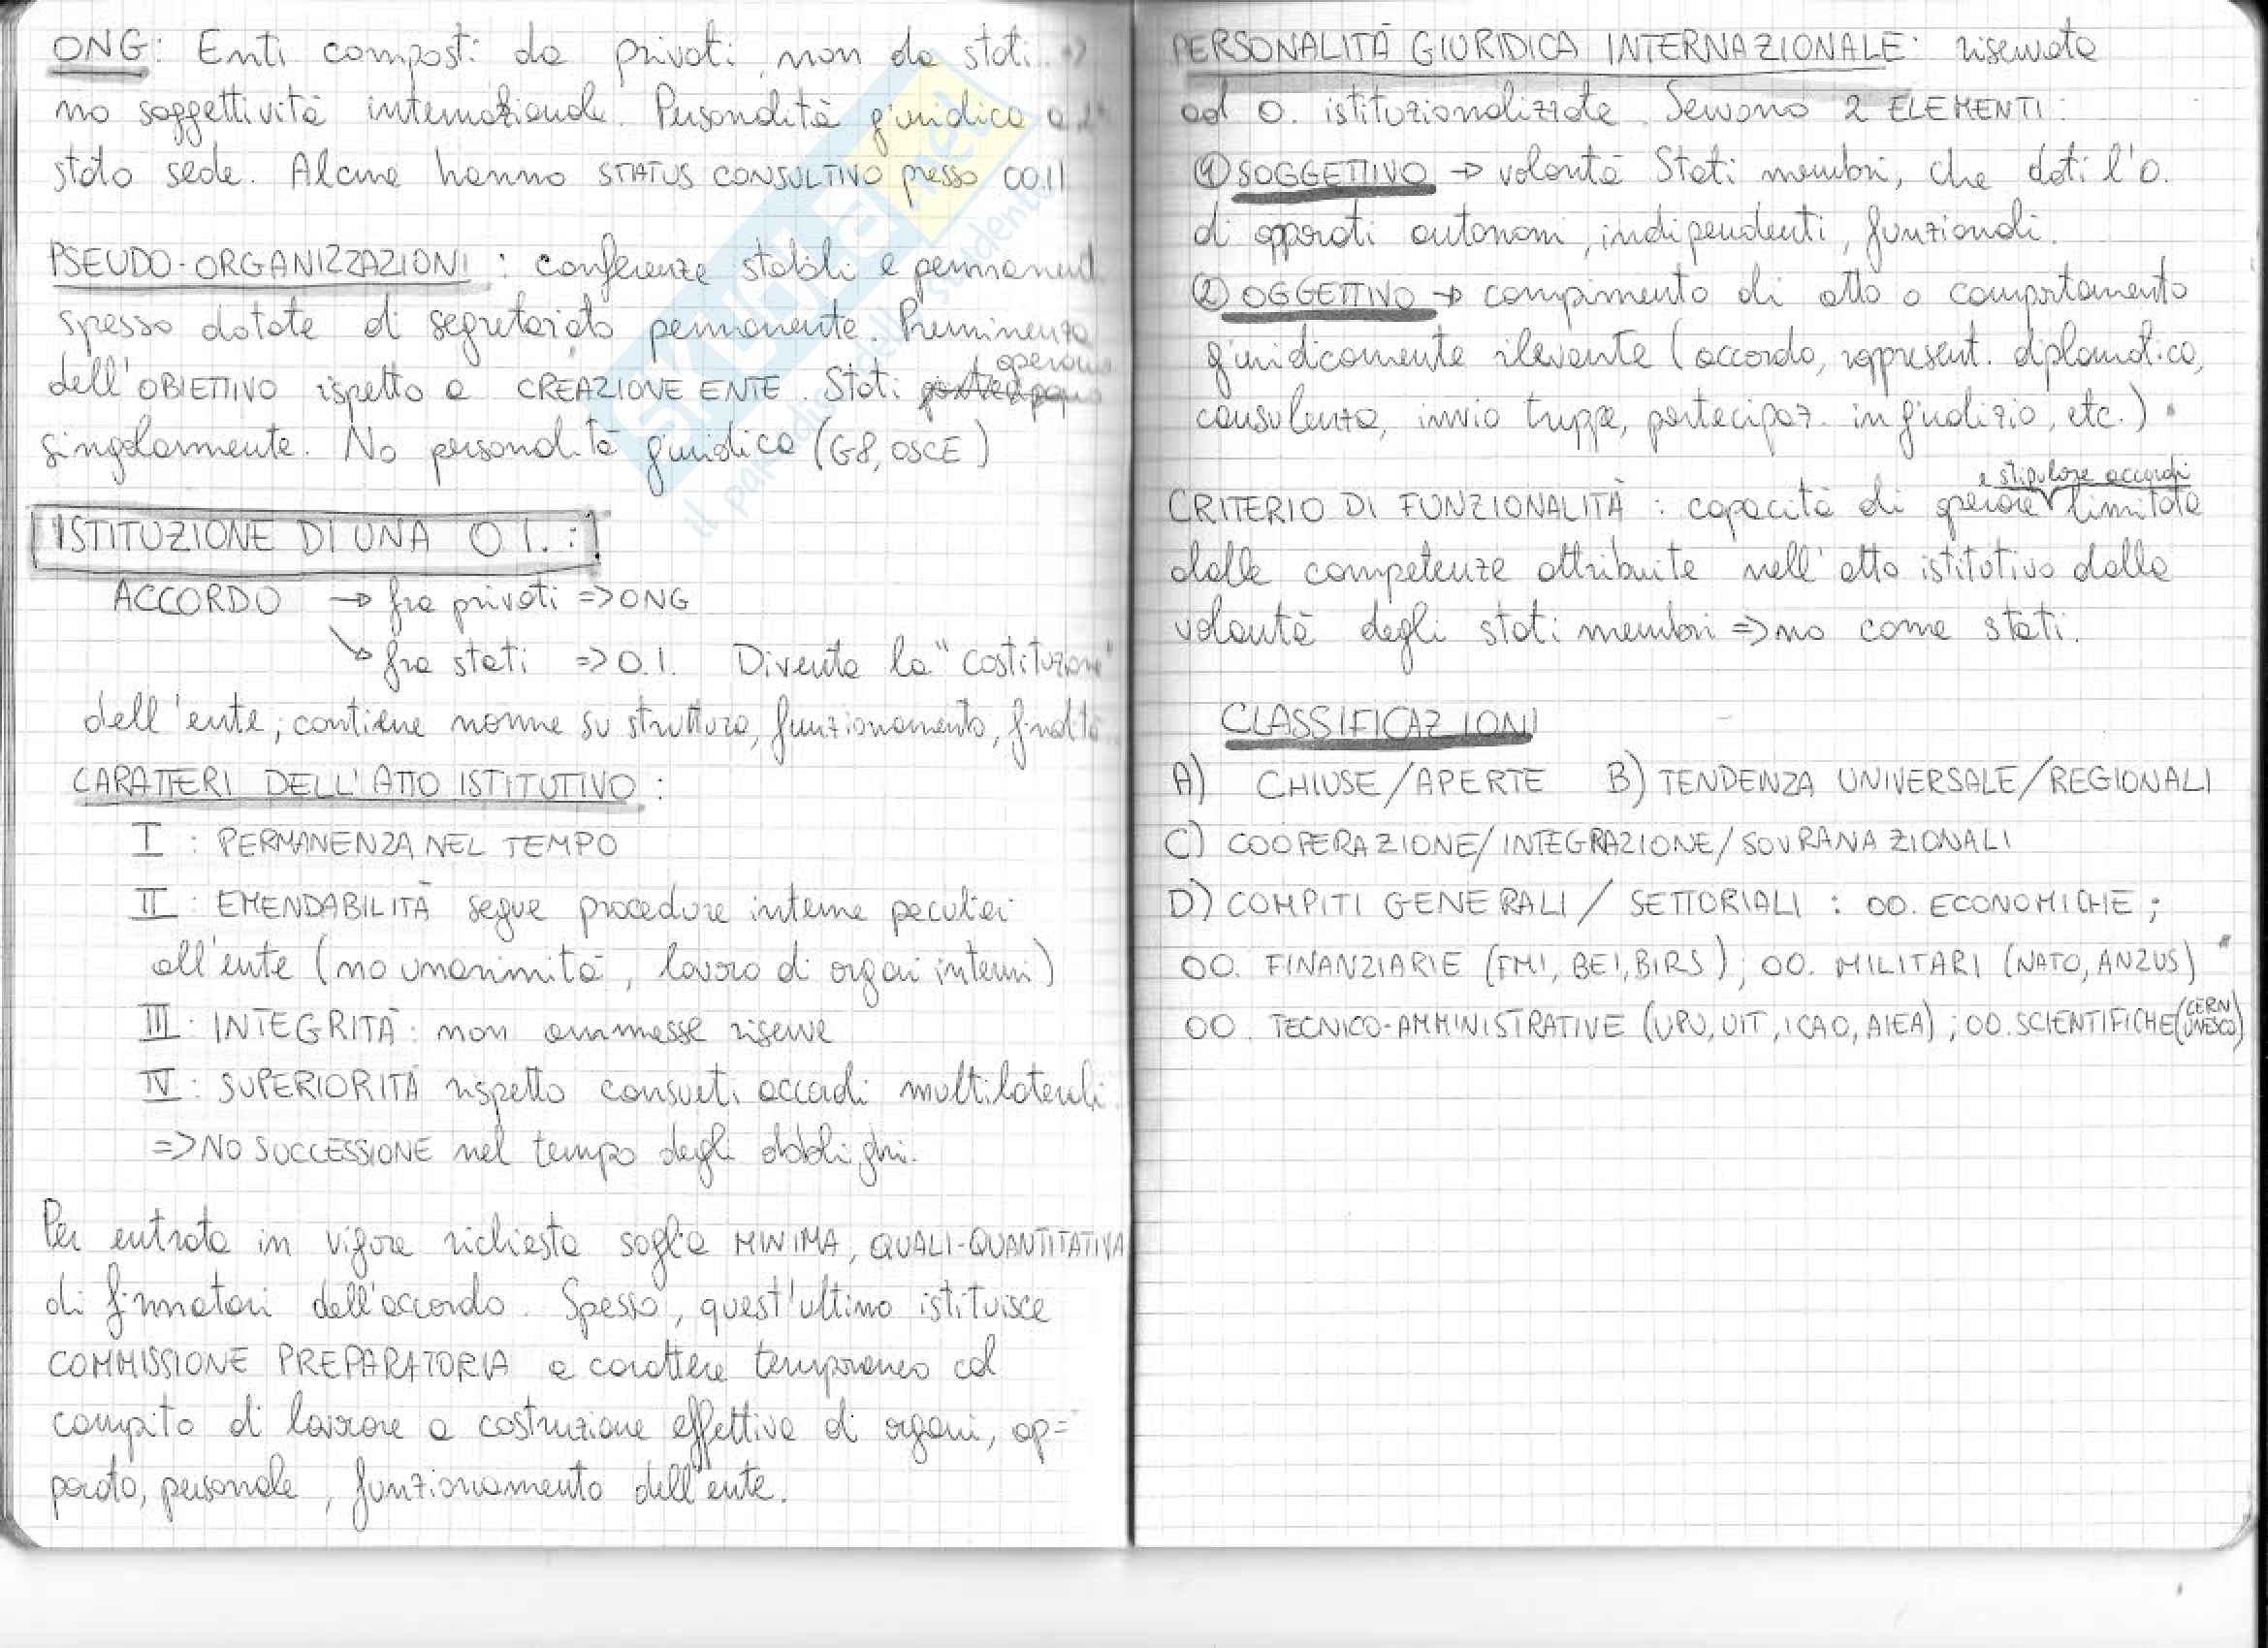 ONG: Enti composti da privati, non da stati =>
no soggettività internazionale. Personalità giuridica
stato sede. Alcune hanno STATUS CONSULTIVO presso OO.II
PSEUDO-ORGANIZZAZIONI: conferenze stabili e permanenti
spesso dotate di segretariato permanente. Preminenza
dell'OBIETTIVO rispetto a CREAZIONE ENTE. Stati operano
singolarmente. No personalità giuridica (G8, OSCE)
ISTITUZIONE DI UNA O.I.:
ACCORDO -> fra privati => ONG
-> fra stati => O.I. Diventa la "costituzione"
dell'ente; contiene norme su struttura, funzionamento, finalità
CARATTERI DELL'ATTO ISTITUTIVO:
I: PERMANENZA NEL TEMPO
II: EMENDABILITÀ segue procedure interne peculiari
all'ente (no unanimità, lavoro di organi interni)
III: INTEGRITÀ: non ammesse riserve
IV: SUPERIORITÀ rispetto consueti accordi multilaterali
=> NO SUCCESSIONE nel tempo degli obblighi.
Per entrata in vigore richiesta soglia MINIMA, QUALI-QUANTITATIVA
di firmatari dell'accordo. Spesso, quest'ultimo istituisce
COMMISSIONE PREPARATORIA a carattere temporaneo col
compito di lavorare a costruzione effettiva di organi, ap=
parato, personale, funzionamento dell'ente.
PERSONALITÀ GIURIDICA INTERNAZIONALE: riservata
ad O. istituzionalizzate. Servono 2 ELEMENTI:
① SOGGETTIVO -> volontà Stati membri, che doti l'O.
di apparati autonomi, indipendenti, funzionali.
② OGGETTIVO -> compimento di atto o comportamento
giuridicamente rilevante (accordo, rappresent. diplomatica,
consulenza, invio truppe, partecipaz. in giudizio, etc.)
CRITERIO DI FUNZIONALITÀ: capacità di operare e stipulare accordi limitata
dalle competenze attribuite nell'atto istitutivo dalla
volontà degli stati membri => no come stati.
CLASSIFICAZIONI
A) CHIUSE/APERTE B) TENDENZA UNIVERSALE/REGIONALI
C) COOPERAZIONE/INTEGRAZIONE/SOVRANAZIONALI
D) COMPITI GENERALI / SETTORIALI: OO. ECONOMICHE;
OO. FINANZIARIE (FMI, BEI, BIRS); OO. MILITARI (NATO, ANZUS)
OO. TECNICO-AMMINISTRATIVE (UPU, UIT, ICAO, AIEA); OO. SCIENTIFICHE (CERN UNESCO)